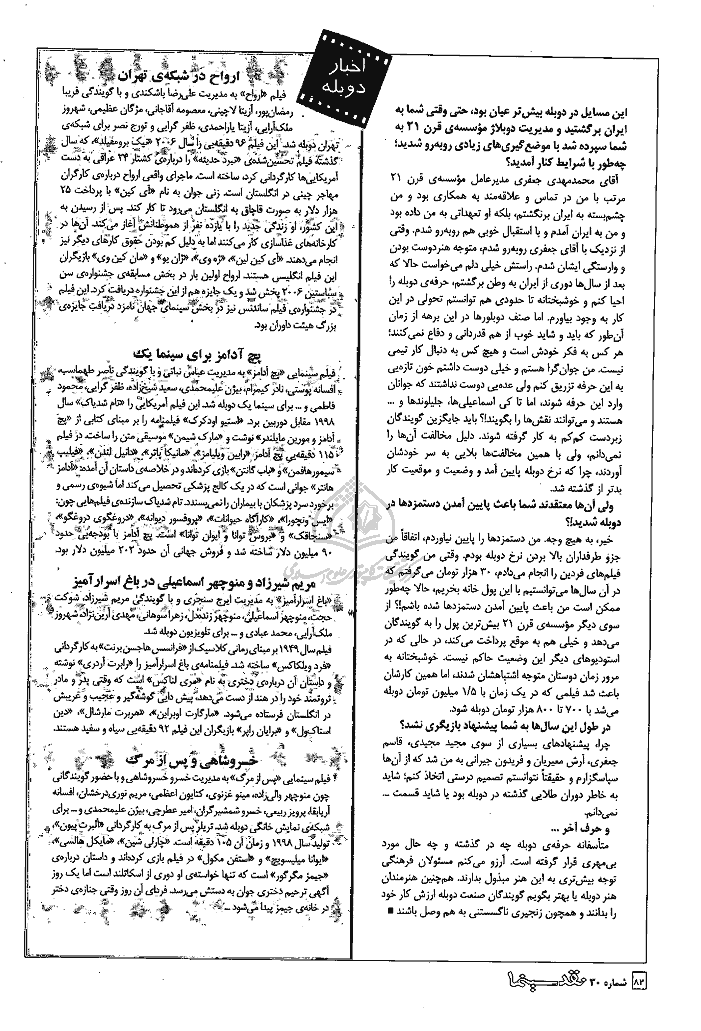 این مسایل در دوبله بیش‌تر عیان بود، حتی وقتی شما به
ایران برگشتید و مدیریت دوبلاژ مؤسسه‌ی قرن ۲۱ به
شما سپرده شد با موضع‌گیری‌های زیادی روبه‌رو شدید؛
چه‌طور با شرایط کنار آمدید؟
آقای محمدمهدی جعفری مدیرعامل مؤسسه‌ی قرن ۲۱
مرتب با من در تماس و علاقه‌مند به همکاری بود و من
چشم‌بسته به ایران برنگشتم، بلکه او تعهداتی به من داده بود
و من به ایران آمدم و با استقبال خوبی هم روبه‌رو شدم. وقتی
از نزدیک با آقای جعفری روبه‌رو شدم، متوجه هنردوست بودن
و وارستگی ایشان شدم. راستش خیلی دلم می‌خواست حالا که
بعد از سال‌ها دوری از ایران به وطن برگشتم، حرفه‌ی دوبله را
احیا کنم و خوشبختانه تا حدودی هم توانستم تحولی در این
کار به وجود بیاورم. اما صنف دوبلورها در این برهه از زمان
آن‌طور که باید و شاید خوب از هم قدردانی و دفاع نمی‌کنند؛
هر کس به فکر خودش است و هیچ کس به دنبال کار تیمی
نیست. من جوان‌گرا هستم و خیلی دوست داشتم خون تازه‌یی
به این حرفه تزریق کنم ولی عده‌یی دوست نداشتند که جوانان
وارد این حرفه شوند، اما تا کی اسماعیلی‌ها، جلیلوندها و ...
هستند و می‌توانند نقش‌ها را بگویند!؟ باید جایگزین گویندگان
زبردست کم‌کم به کار گرفته شوند. دلیل مخالفت آن‌ها را
نمی‌دانم، ولی با همین مخالفت‌ها بلایی به سر خودشان
آوردند، چرا که نرخ دوبله پایین آمد و وضعیت و موقعیت کار
بدتر از گذشته شد.
ولی آن‌ها معتقدند شما باعث پایین آمدن دستمزدها در
دوبله شدید!؟
خیر، به هیچ وجه. من دستمزدها را پایین نیاوردم، اتفاقاً من
جزو طرفداران بالا بردن نرخ دوبله بودم. وقتی من گویندگی
فیلم‌های فردین را انجام می‌دادم، ۳۰ هزار تومان می‌گرفتم که
در آن سال‌ها می‌توانستیم با این پول خانه بخریم، حالا چه‌طور
ممکن است من باعث پایین آمدن دستمزدها شده باشم!؟ از
سوی دیگر مؤسسه‌ی قرن ۲۱ بیش‌ترین پول را به گویندگان
می‌دهد و خیلی هم به موقع پرداخت می‌کند، در حالی که در
استودیوهای دیگر این وضعیت حاکم نیست. خوشبختانه به
مرور زمان دوستان متوجه اشتباهشان شدند، اما همین کارشان
باعث شد فیلمی که در یک زمان با ۱/۵ میلیون تومان دوبله
می‌شد با ۷۰۰ تا ۸۰۰ هزار تومان دوبله شود.
در طول این سال‌ها به شما پیشنهاد بازیگری نشد؟
چرا، پیشنهادهای بسیاری از سوی مجید مجیدی، قاسم
جعفری، آرش معیریان و فریدون جیرانی به من شد که از آن‌ها
سپاسگزارم و حقیقتاً نتوانستم تصمیم درستی اتخاذ کنم؛ شاید
به خاطر دوران طلایی گذشته در دوبله بود یا شاید قسمت ...
نمی‌دانم.
و حرف آخر ...
متأسفانه حرفه‌ی دوبله چه در گذشته و چه حال مورد
بی‌مهری قرار گرفته است. آرزو می‌کنم مسئولان فرهنگی
توجه بیش‌تری به این هنر مبذول بدارند. هم‌چنین هنرمندان
هنر دوبله یا بهتر بگویم گویندگان صنعت دوبله ارزش کار خود
را بدانند و همچون زنجیری ناگسستنی به هم وصل باشند ■
اخبار
دوبله
ارواح در شبکه‌ی تهران
فیلم «ارواح» به مدیریت علی‌رضا باشکندی و با گویندگی فریبا
رمضان‌پور، آزیتا لاچینی، معصومه آقاجانی، مژگان عظیمی، شهروز
ملک‌آرایی، آزیتا یاراحمدی، ظفر گرایی و تورج نصر برای شبکه‌ی
تهران دوبله شد. این فیلم ۹۶ دقیقه‌یی را سال ۲۰۰۶ «نیک برومفیلد»، که سال
گذشته فیلم تحسین‌شده‌ی «نبرد حدیثه» را درباره‌ی کشتار ۲۴ عراقی به دست
آمریکایی‌ها کارگردانی کرد، ساخته است. ماجرای واقعی ارواح درباره‌ی کارگران
مهاجر چینی در انگلستان است. زنی جوان به نام «آی کین» با پرداخت ۲۵
هزار دلار به صورت قاچاق به انگلستان می‌رود تا کار کند. پس از رسیدن به
این کشور، او زندگی جدید را با یازده نفر از هموطنانش آغاز می‌کند. آن‌ها در
کارخانه‌های غذاسازی کار می‌کنند اما به دلیل کم بودن حقوق کارهای دیگر نیز
انجام می‌دهند. «آی کین لین»، «ژه وی»، «ژان یو» و «مان کین وی» بازیگران
این فیلم انگلیسی هستند. ارواح اولین بار در بخش مسابقه‌ی جشنواره‌ی سن
سباستین ۲۰۰۶ پخش شد و یک جایزه هم از این جشنواره دریافت کرد. این فیلم
در جشنواره‌ی فیلم ساندنس نیز در بخش سینمای جهان نامزد دریافت جایزه‌ی
بزرگ هیئت داوران بود.
پچ آدامز برای سینما یک
فیلم سینمایی «پچ آدامز» به مدیریت عباس نباتی و با گویندگی ناصر طهماسب،
افسانه پوستی، نادر کیمرام، بیژن علیمحمدی، سعید شیخ‌زاده، ظفر گرایی، محمود
فاطمی و ... برای سینما یک دوبله شد. این فیلم آمریکایی را «تام شدیاک» سال
۱۹۹۸ مقابل دوربین برد. «استیو اودکرک» فیلمنامه را بر مبنای کتابی از «پچ
آدامز و مورین مایلندر» نوشت و «مارک شیمن» موسیقی متن را ساخت. در فیلم
۱۱۵ دقیقه‌یی پچ آدامز، «رابین ویلیامز»، «مانیکا پاتر»، «دانیل لندن»، «فیلیپ
سیمور هافمن» و «باب گانتن» بازی کرده‌اند و در خلاصه‌ی داستان آن آمده: «آدامز
هانتر» جوانی است که در یک کالج پزشکی تحصیل می‌کند اما شیوه‌ی رسمی و
برخورد سرد پزشکان با بیماران را نمی‌پسندد. تام شدیاک سازنده‌ی فیلم‌هایی چون:
«ایس ونچورا»، «کارآگاه حیوانات»، «پروفسور دیوانه»، «دروغگوی دروغگو»،
«سنجاقک» و «بروس توانا و ایوان توانا» است. پچ آدامز با بودجه‌یی حدود
۹۰ میلیون دلار ساخته شد و فروش جهانی آن حدود ۲۰۲ میلیون دلار بود.
مریم شیرزاد و منوچهر اسماعیلی در باغ اسرارآمیز
«باغ اسرارآمیز» به مدیریت ایرج سنجری و با گویندگی مریم شیرزاد، شوکت
حجت، منوچهر اسماعیلی، منوچهر زنده‌دل، زهرا سوهانی، مهدی آرین‌نژاد، شهروز
ملک‌آرایی، محمد عبادی و ... برای تلویزیون دوبله شد.
فیلم سال ۱۹۴۹ بر مبنای رمانی کلاسیک از «فرانسس هاجسن برنت» به کارگردانی
«فرد ویلکاکس» ساخته شد. فیلمنامه‌ی باغ اسرارآمیز را «رابرت آردری» نوشته
و داستان آن درباره‌ی دختری به نام «مری لناکس» است که وقتی پدر و مادر
ثروتمند خود را در هند از دست می‌دهد، پیش دایی گوشه‌گیر و عجیب و غریبش
در انگلستان فرستاده می‌شود. «مارگارت اوبراین»، «هربرت مارشال»، «دین
استاک‌ول» و «برایان راپر» بازیگران این فیلم ۹۲ دقیقه‌یی سیاه و سفید هستند.
خسروشاهی و پس از مرگ
فیلم سینمایی «پس از مرگ» به مدیریت خسرو خسروشاهی و با حضور گویندگانی
چون منوچهر والی‌زاده، مینو غزنوی، کتایون اعظمی، مریم نوری‌درخشان، افسانه
آریابقا، پرویز ربیعی، خسرو شمشیرگران، امیر عطرچی، بیژن علیمحمدی و ... برای
شبکه‌ی نمایش خانگی دوبله شد. تریلر پس از مرگ به کارگردانی «آلبرت پیون»،
تولید سال ۱۹۹۸ و زمان آن ۱۰۵ دقیقه است. «چارلی شین»، «مایکل هالسی»،
«ایوانا میلسویچ» و «استفن مکول» در فیلم بازی کرده‌اند و داستان درباره‌ی
«جیمز مگرگور» است که تنها خواسته‌ی او دوری از اسکاتلند است اما یک روز
آگهی ترحیم دختری جوان به دستش می‌رسد. فردای آن روز وقتی جنازه‌ی دختر
در خانه‌ی جیمز پیدا می‌شود ...
۸۲ شماره ۳۰ نقد سینما